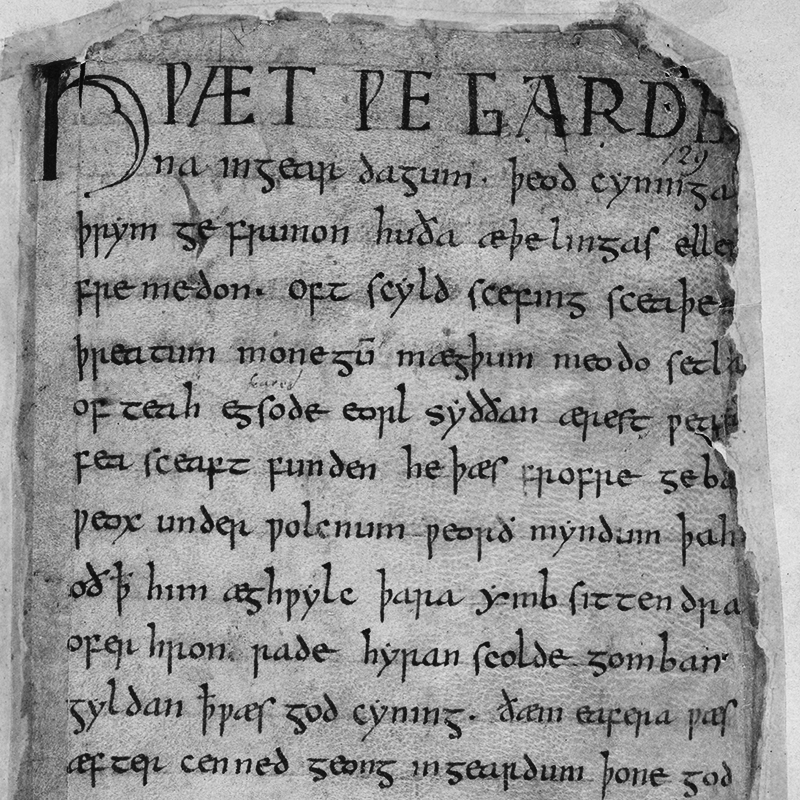 HǷÆT ǷE GARDE
na ingear dagum. þeod cyninga
þrym ge frunon huða æþelingas elle
fremedon. oft scyld scefing sceaþe
þreatum monegū mægþum meodo setla
of teah egsode eorl syððan ærest ƿear
fea sceaft funden he þæs frofre geba
ƿeox under ƿolcnum ƿeorð myndum þah
oð ꝥ him æghƿylc þara ymb sittendra
ofer hron rade hyran scolde gomban
gyldan ꝥ ƿæs god cyning. ðæm eafera ƿæs
æfter cenned geong ingeardum þone god
129